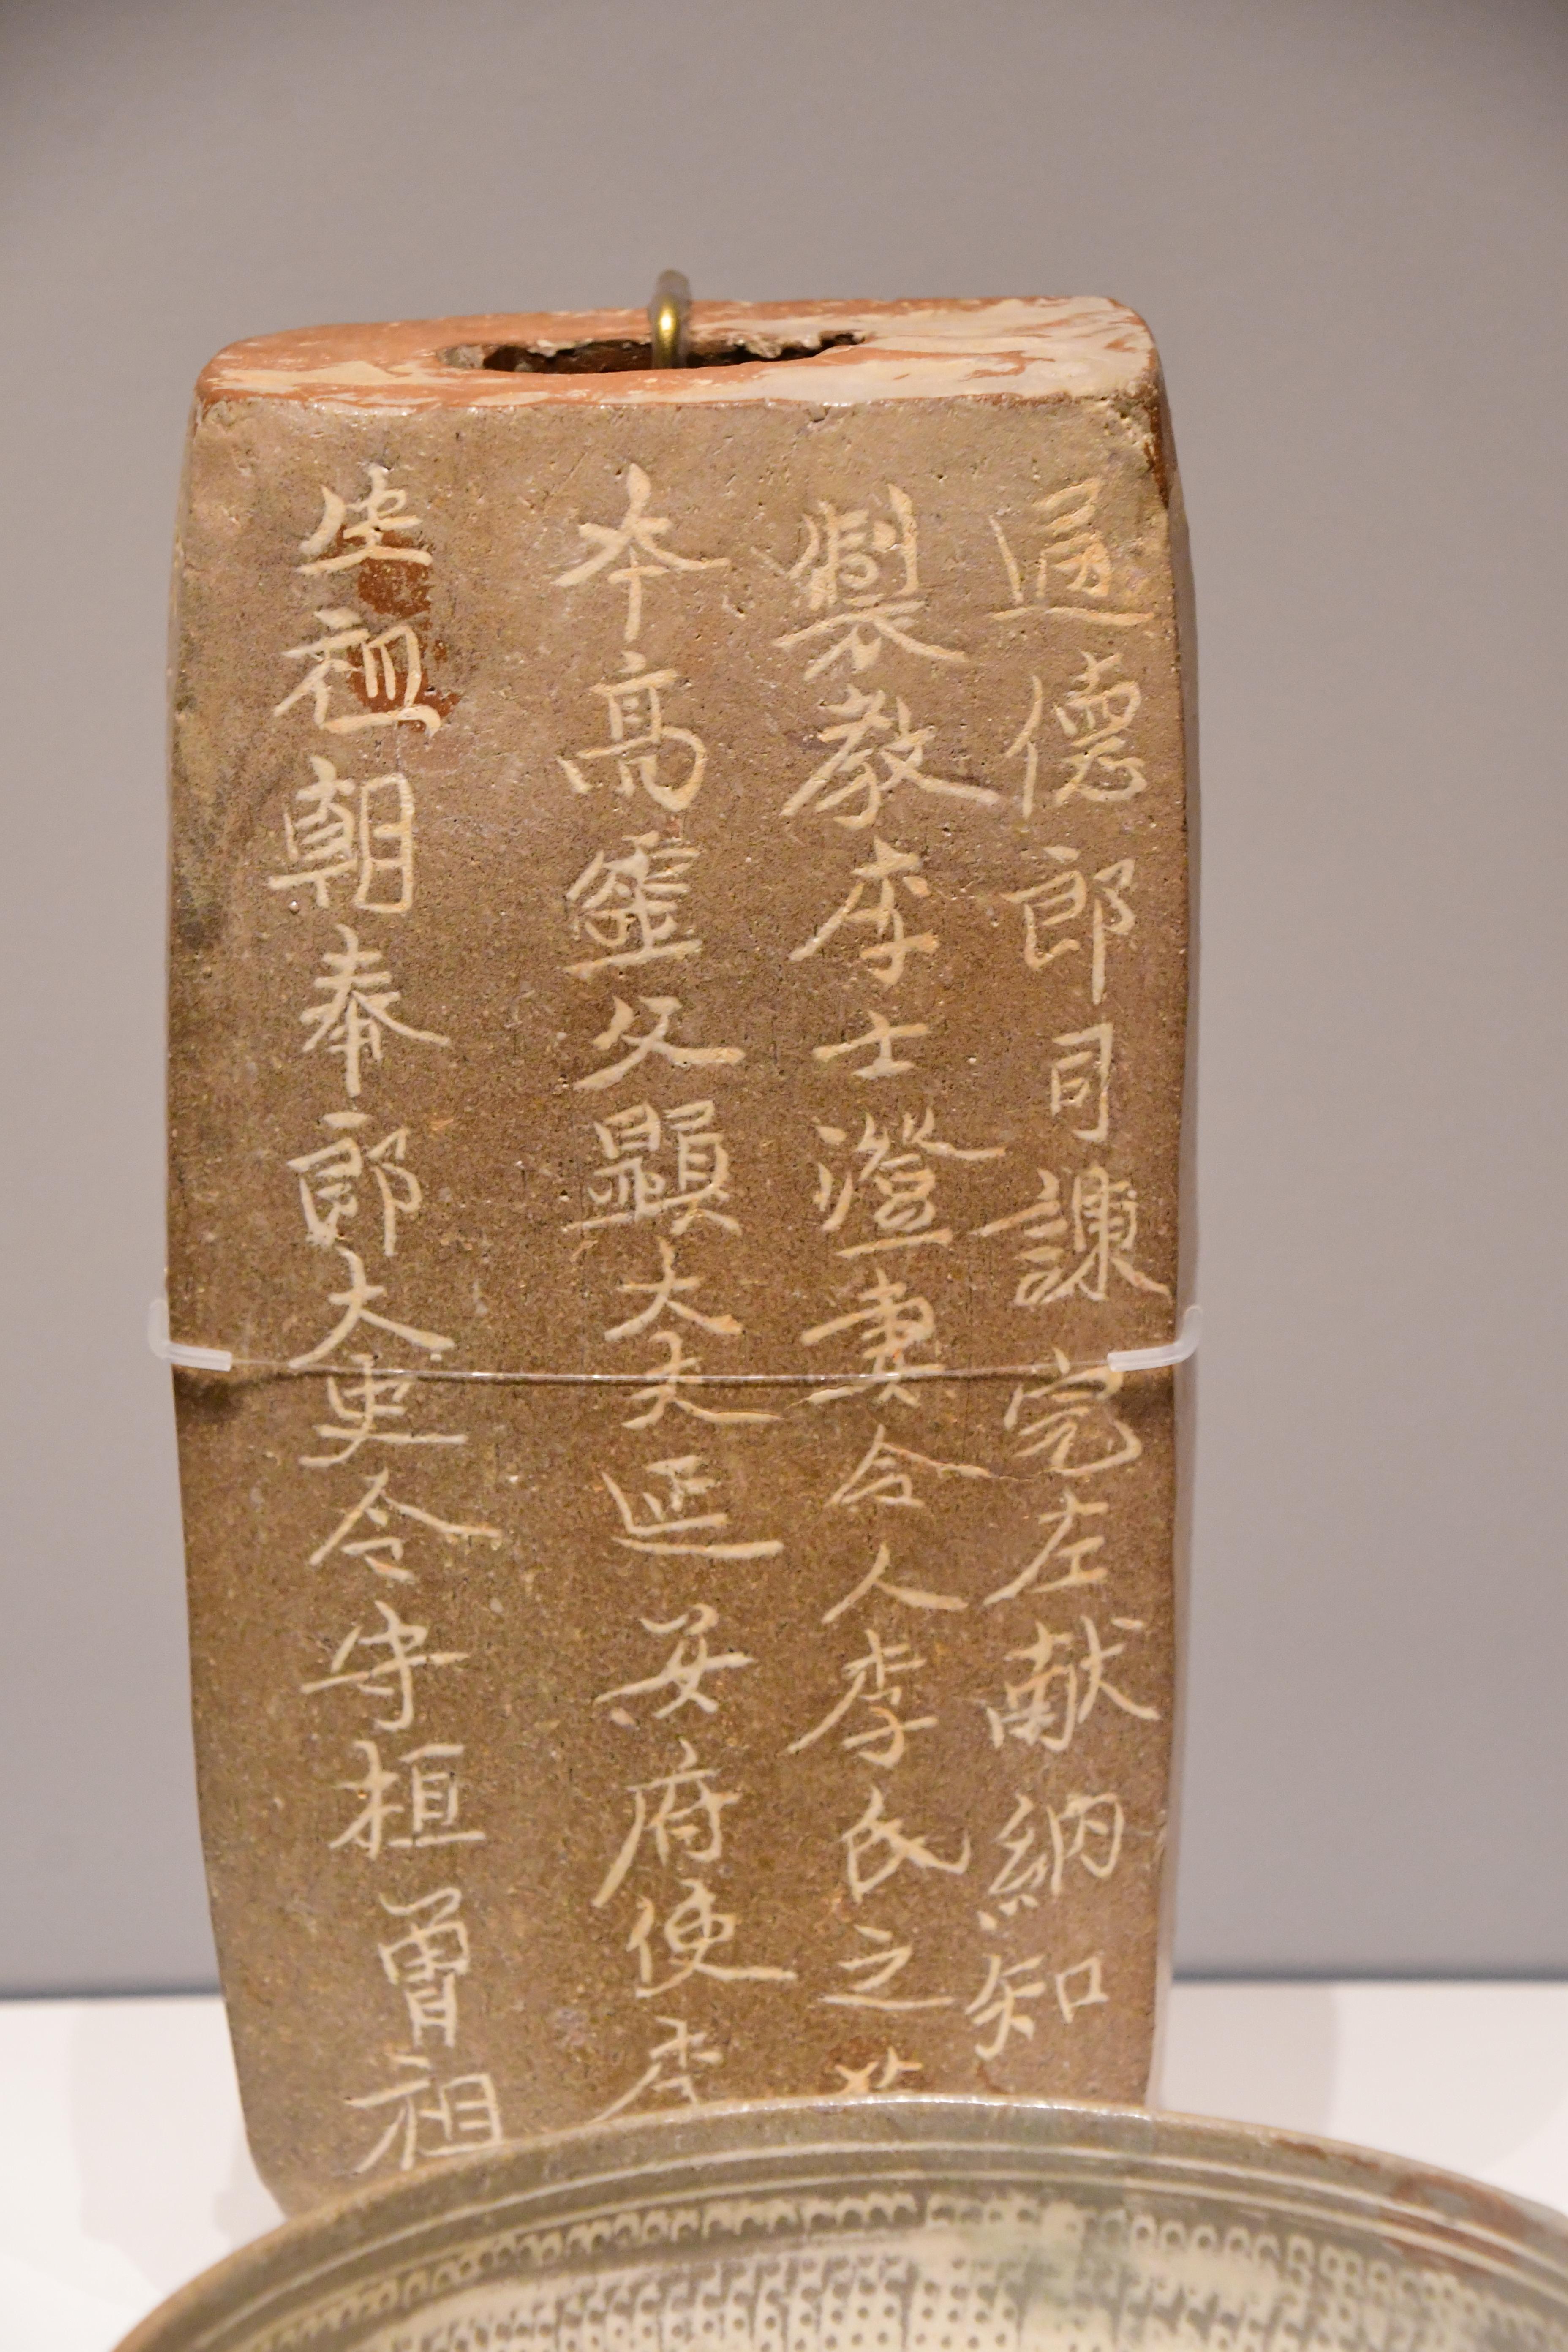 通德郎司諫院左献納知
製教李士澄妻令人李氏之
本高霊父顯大夫延安府使李
生祖朝奉郎大
令守桓曾祖